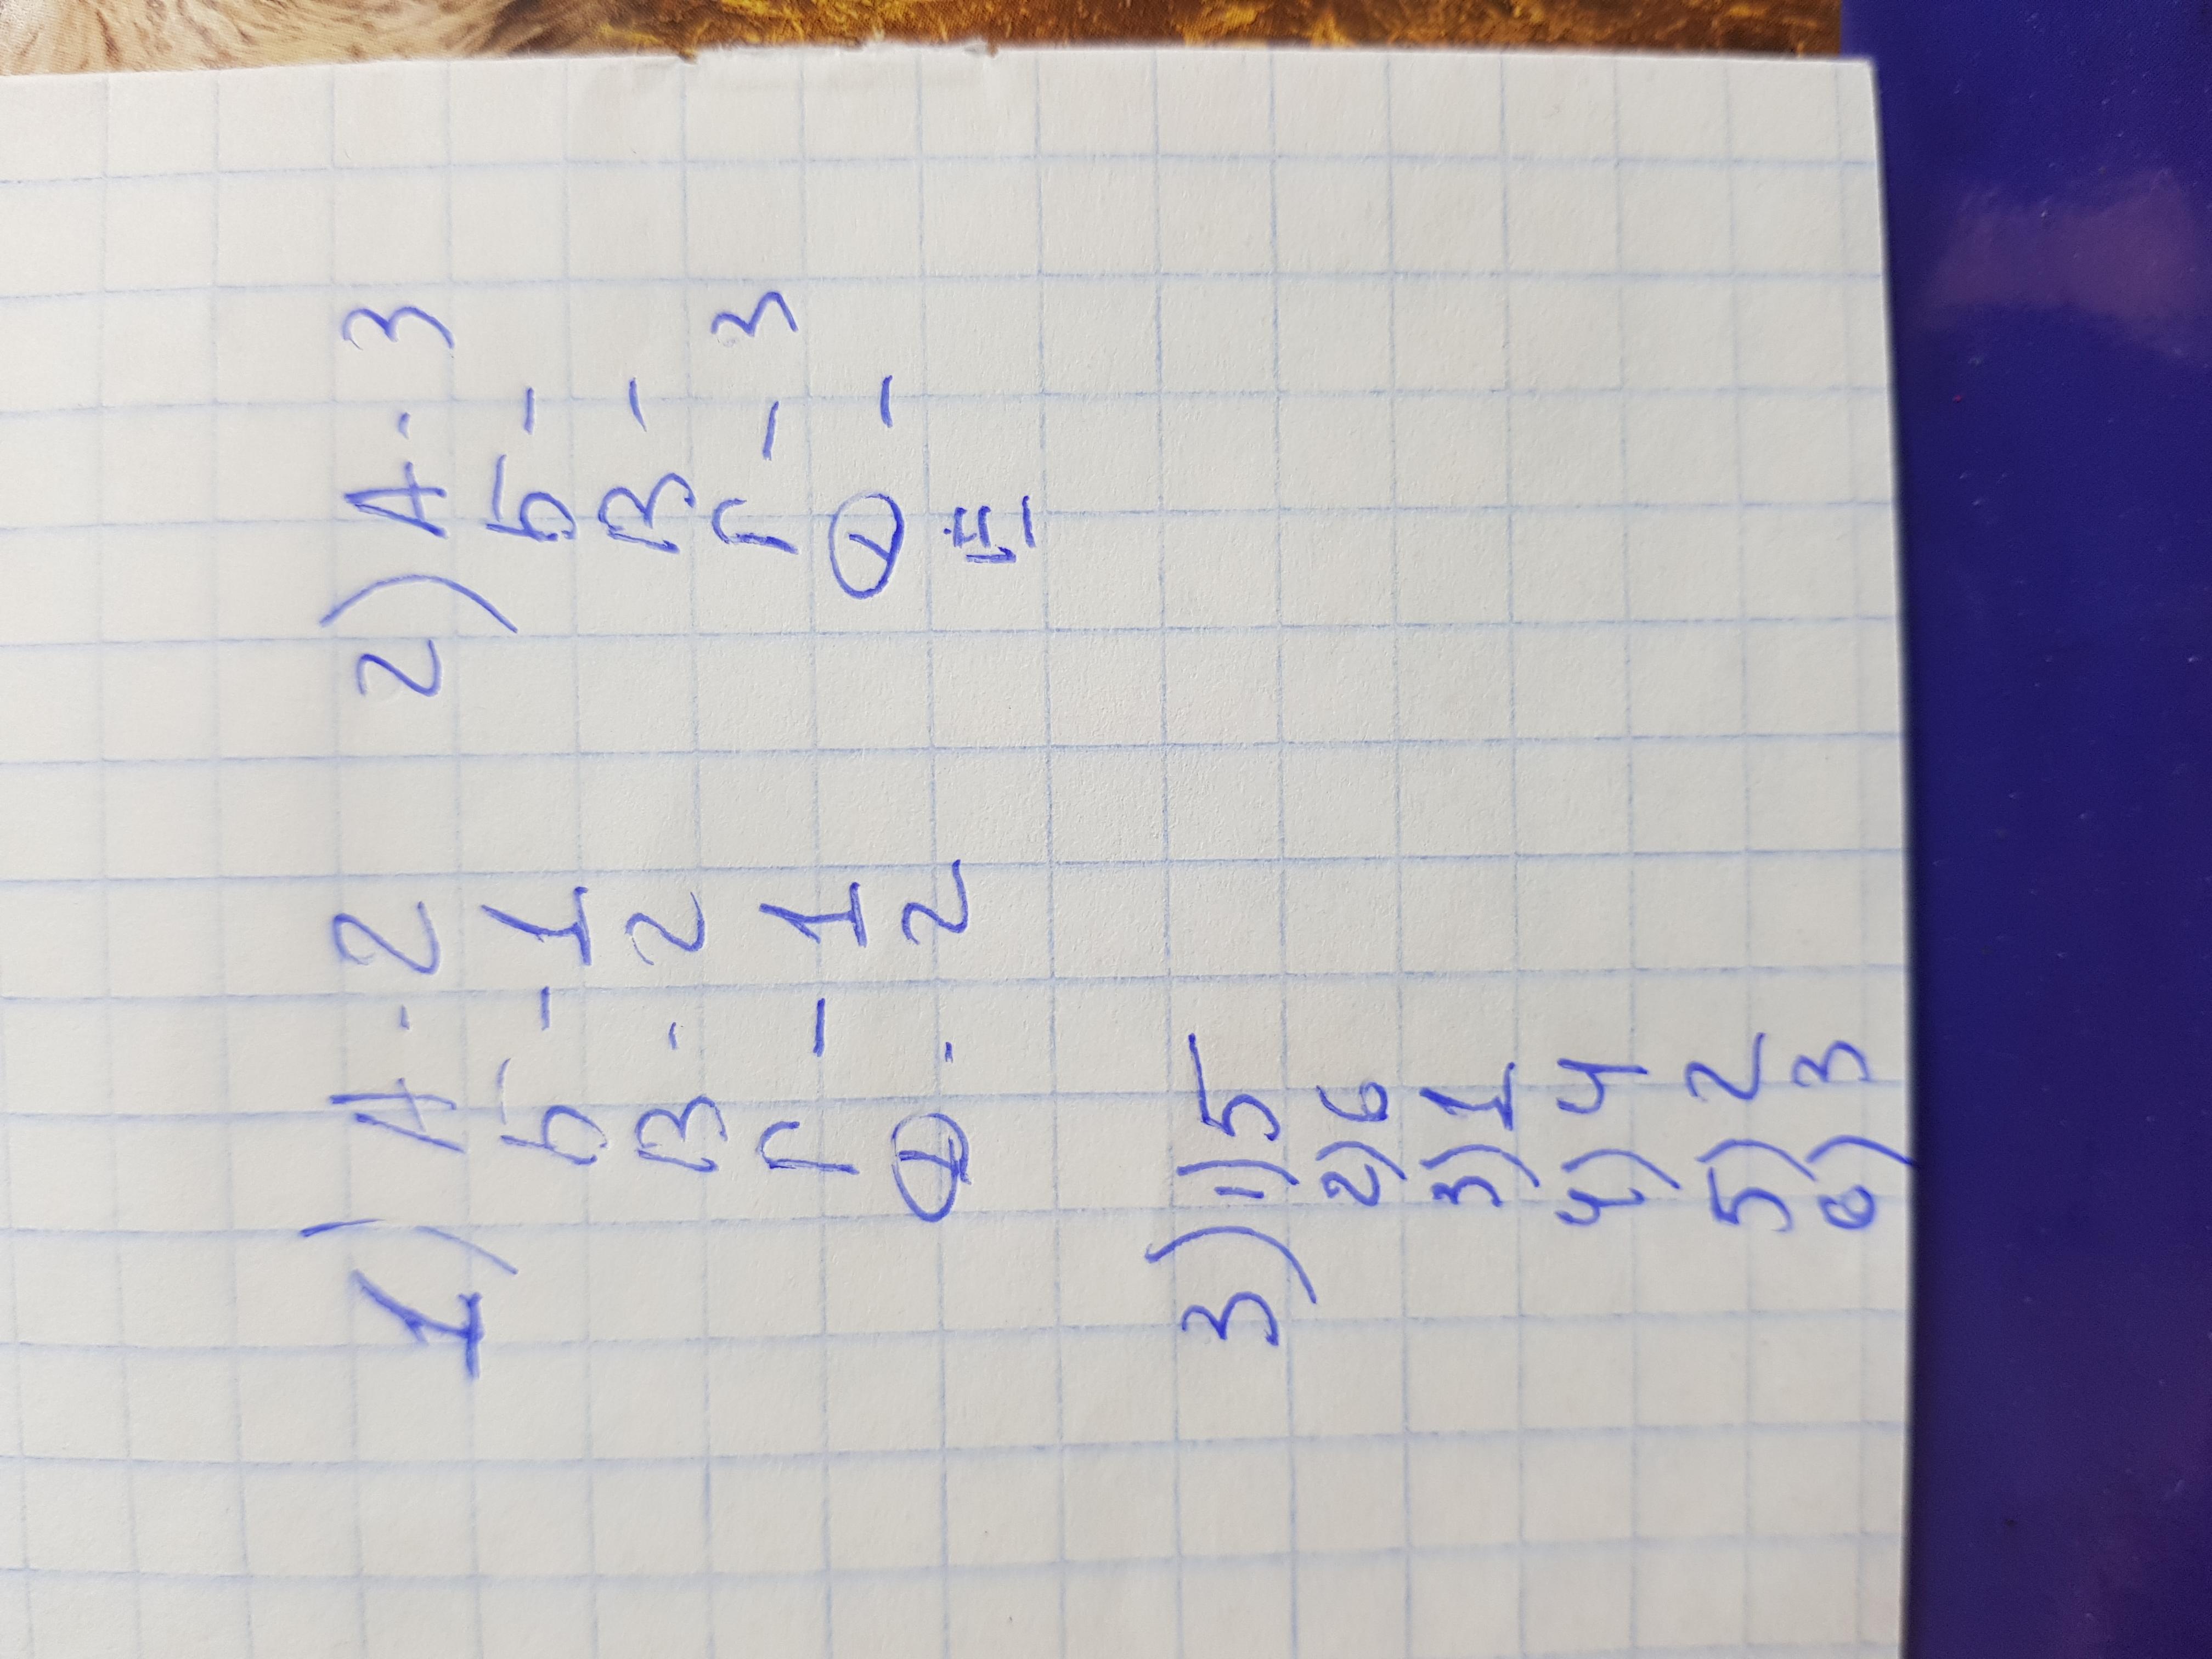 1) А - 2
Б - 1
В - 2
Г - 1
- 2
2) А - 3
Б -
В -
Г - 3
-
3) 1) 5
2) 6
3) 1
4) 4
5) 2
6) 3